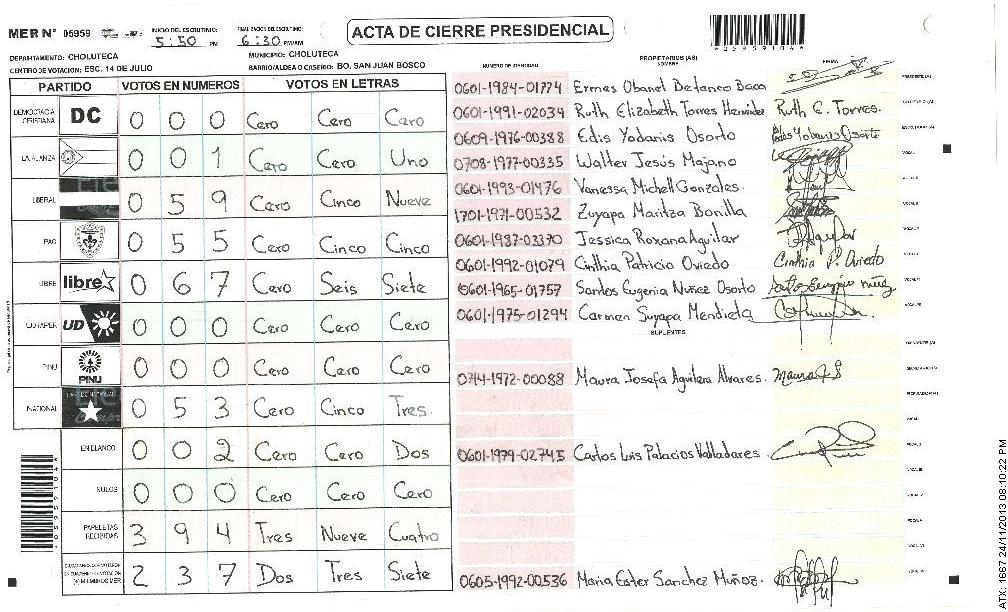 MER N° 05959
INICIO DEL ESCRUTINIO: 5:50 PM
FINALIZACION DEL ESCRUTINIO: 6:30 PM/AM
ACTA DE CIERRE PRESIDENCIAL
DEPARTAMENTO: CHOLUTECA
MUNICIPIO: CHOLUTECA
CENTRO DE VOTACION: ESC. 14 DE JULIO
BARRIO/ALDEA O CASERIO: BO. SAN JUAN BOSCO
PARTIDO VOTOS EN NUMEROS VOTOS EN LETRAS
DEMOCRACIA CRISTIANA DC 0 0 0 Cero Cero Cero
0 0 1 Cero Cero Uno
LIBERAL 0 5 9 Cero Cinco Nueve
PAC 0 5 5 Cero Cinco Cinco
LIBRE libre 0 6 7 Cero Seis Siete
UD 0 0 0 Cero Cero Cero
PINU PINU 0 0 0 Cero Cero Cero
NACIONAL 0 5 3 Cero Cinco Tres.
EN BLANCO 0 0 2 Cero Cero Dos
NULOS 0 0 0 Cero Cero Cero
PAPELETAS RECIBIDAS 3 9 4 Tres Nueve Cuatro
2 3 7 Dos Tres Siete
NUMERO DE IDENTIDAD PROPIETARIOS (AS) NOMBRE FIRMA
0601-1984-01774 Ermes Obanel Betanco Baca
0601-1991-02034 Ruth Elizabeth Torres Ruth E. Torres.
0609-1976-00388 Edis Yodanis Osorto
0708-1977-00335 Walter Jesús Majano
0601-1993-01476 Vanessa Michell Gonzales.
1701-1971-00532 Zuyapa Maritza Bonilla
0601-1987-03370 Jessica Roxana Aguilar
0601-1992-01079 Cinthia Patricia Oviedo Cinthia P. Oviedo
0601-1965-01757 Santos Eugenia Nuñez Osorto
0601-1975-01294 Carmen Suyapa Mendieta
SUPLENTES
0714-1972-00088 Maura Josefa Aguilera Alvares.
0601-1979-02745 Carlos Luis Palacios Valladares.
0605-1992-00536 Maria Ester Sanchez Muñoz.
ATX: 1667 24/11/2013 08:10:22 PM